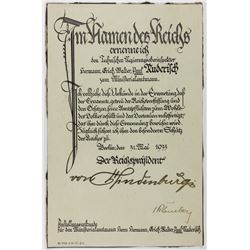 Im Namen des Reichs
ernenne ich
den Technischen Regierungsoberinspektor
Hermann, Erich, Walter, Paul Ruderisch
zum Ministerialamtmann.
Ich vollziehe diese Urkunde in der Erwartung, daß
der Ernannte, getreu der Reichsverfassung und
den Gesetzen, seine Amtspflichten zum Wohle
des Volkes erfüllt und das Vertrauen rechtfertigt,
das ihm durch diese Ernennung bewiesen wird.
Zugleich sichere ich ihm den besonderen Schutz
des Reiches zu.
Berlin, den 31. Mai 1933
Der Reichspräsident
von Hindenburg
für den Ministerialamtmann Herrn Hermann, Erich, Walter, Paul Ruderisch.